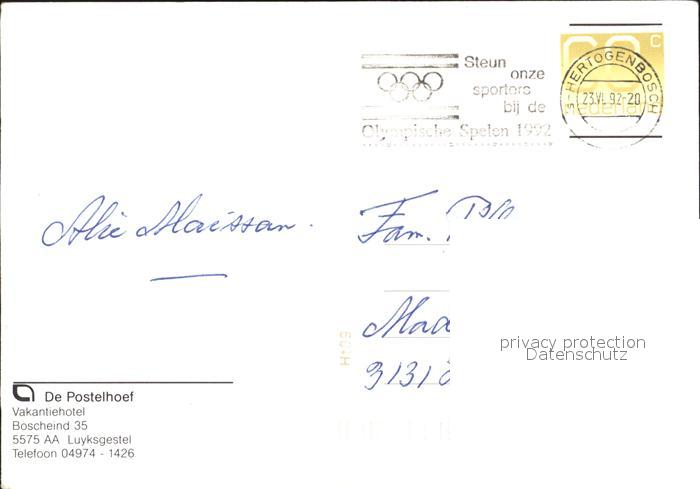 Steun
onze
sporters
bij de
Olympische Spelen 1992
60 C
nederland
's-HERTOGENBOSCH
23.VI.92-20
Alie Maissan.
Fam.
privacy protection
Datenschutz
60+H
De Postelhoef
Vakantiehotel
Boscheind 35
5575 AA Luyksgestel
Telefoon 04974 - 1426